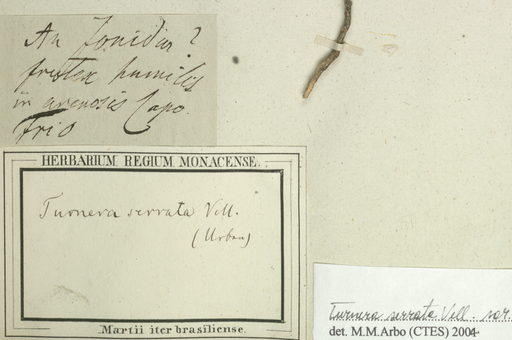 An Jonidium?
frutex humilis
in arenosis Capo
frio
HERBARIUM REGIUM MONACENSE.
Turnera serrata Vell.
(Urban)
Martii iter brasiliense.
Turnera serrata Vell. var.
det. M.M.Arbo (CTES) 2004